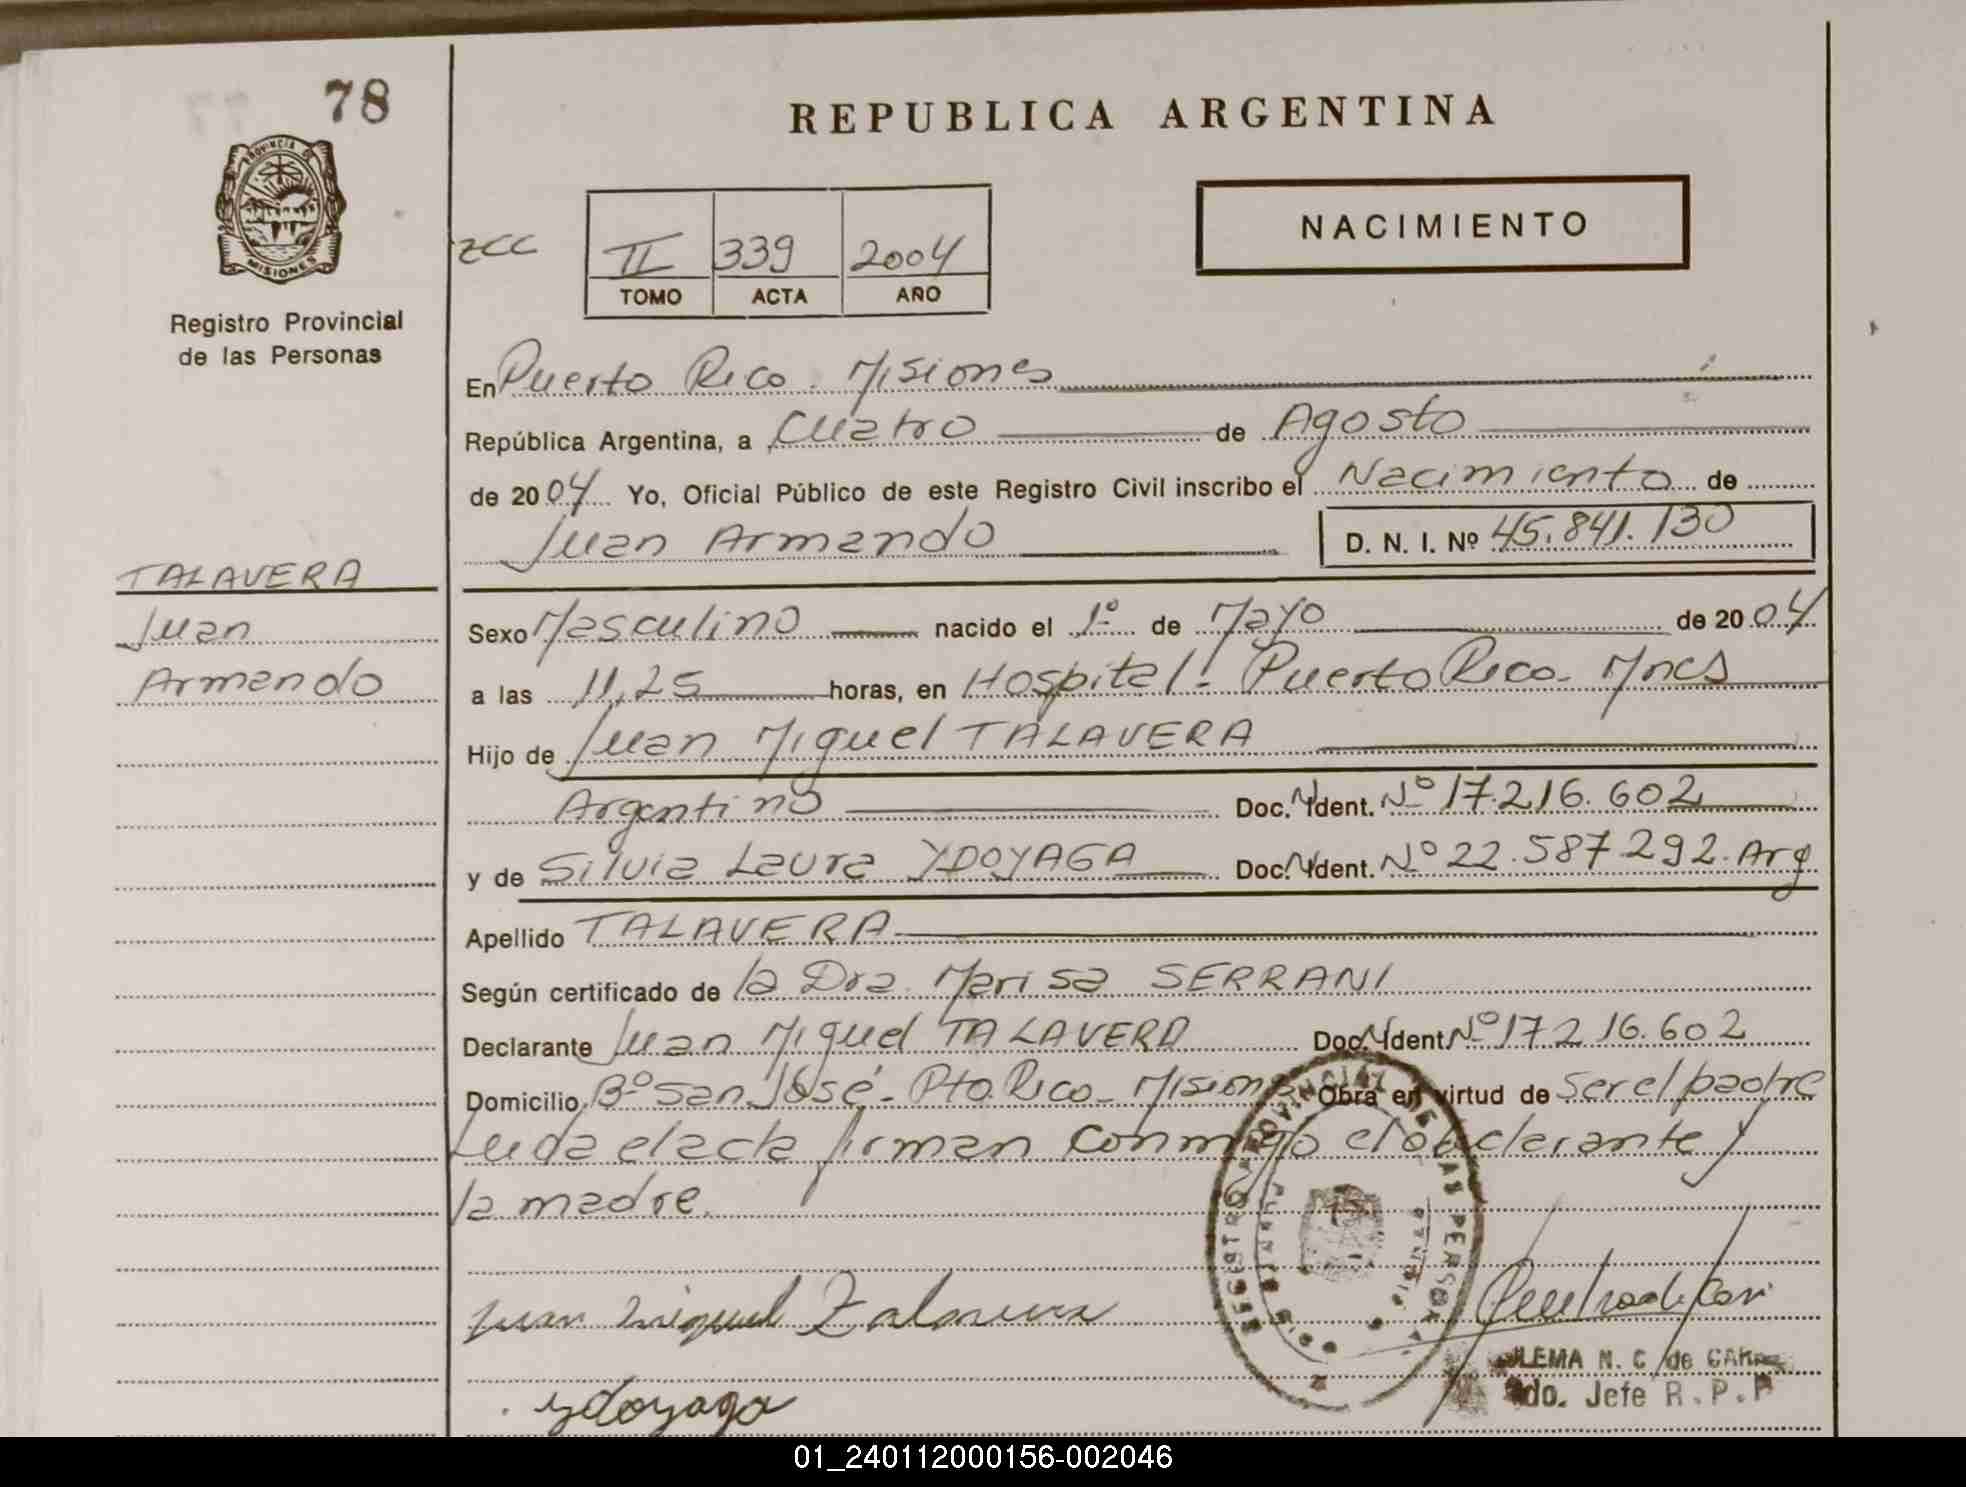 78
PROVINCIA DE
MISIONES
Registro Provincial
de las Personas
REPUBLICA ARGENTINA
zcc
II 339 2004
TOMO ACTA AÑO
NACIMIENTO
En Puerto Rico. Misiones
República Argentina, a Cuatro de Agosto
de 2004 Yo, Oficial Público de este Registro Civil inscribo el Nacimiento de
Juan Armando D. N. I. Nº 45.841.130
TALAVERA
Juan
Armando
Sexo Masculino nacido el 1º de Mayo de 2004
a las 11,25 horas, en Hospital - Puerto Rico - Mnes
Hijo de Juan Miguel TALAVERA
Argentino Doc. N. Ident. Nº 17.216.602
y de Silvia Laura YDOYAGA Doc. N. Ident. Nº 22.587.292. Arg
Apellido TALAVERA
Según certificado de la Dra. Marisa SERRANI
Declarante Juan Miguel TALAVERA Doc. N. Ident. Nº 17.216.602
Domicilio Bº San José - Pto. Rico - Misiones Obra en virtud de ser el padre
Leída el acta firman conmigo el declarante y
la madre.
REGISTRO PROVINCIAL DE LAS PERSONAS
Juan Miguel Talavera
ydoyaga
N. C. de
do. Jefe R. P. P
01_240112000156-002046